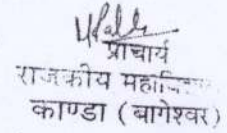 प्राचार्य
राजकीय
काण्डा ( बागेश्वर )